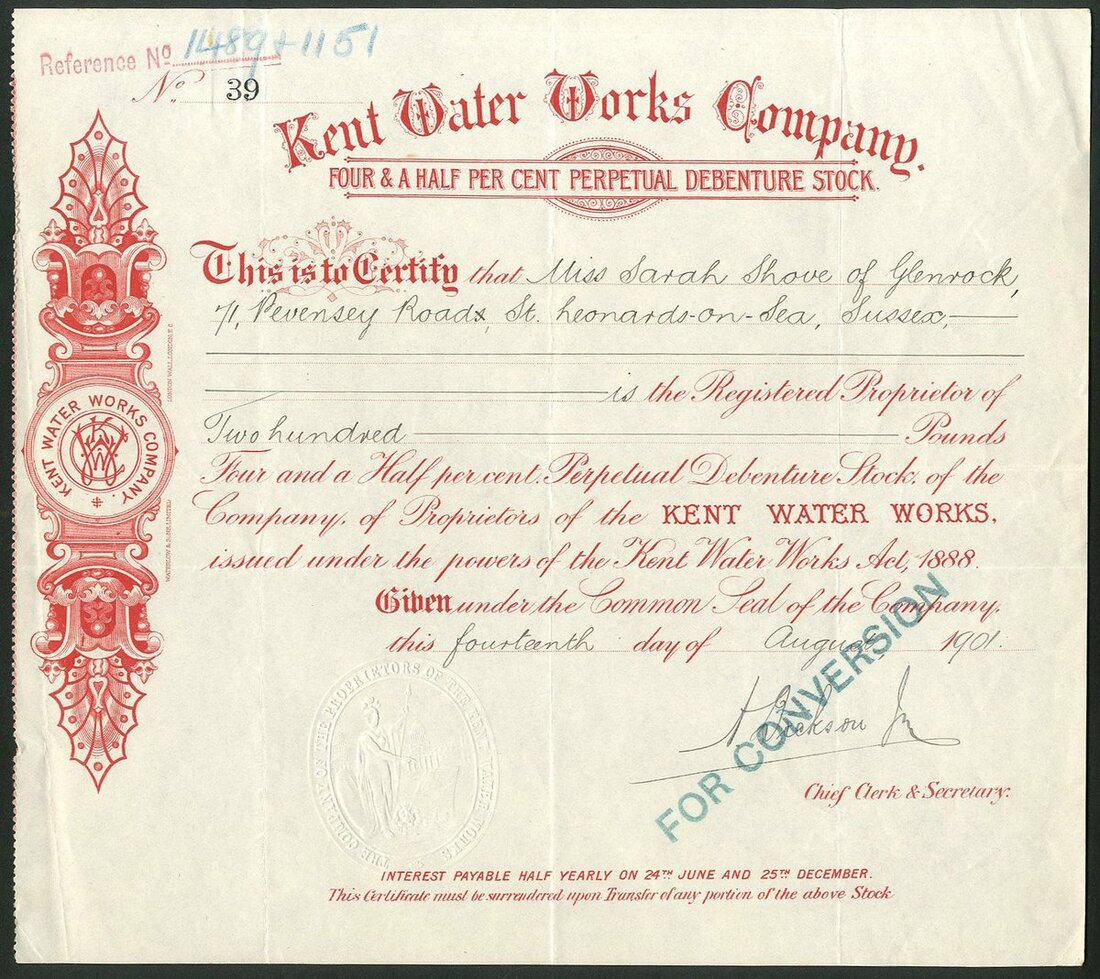 Reference Nº 1489+1151
Nº 39
Kent Water Works Company.
FOUR & A HALF PER CENT PERPETUAL DEBENTURE STOCK.
This is to Certify that Miss Sarah Shove of Glenrock,
71, Pevensey Road, St. Leonards-on-Sea, Sussex,
is the Registered Proprietor of
Two hundred Pounds
Four and a Half per cent. Perpetual Debenture Stock, of the
Company, of Proprietors of the KENT WATER WORKS,
issued under the powers of the Kent Water Works Act, 1888.
Given under the Common Seal of the Company,
this fourteenth day of August 1901.
FOR CONVERSION
Chief Clerk & Secretary.
INTEREST PAYABLE HALF YEARLY ON 24TH JUNE AND 25TH DECEMBER.
This Certificate must be surrendered upon Transfer of any portion of the above Stock
KENT WATER WORKS COMPANY.
LONDON WALL, LONDON, E.C.
WATERLOW & SONS LIMITED
THE COMPANY OF THE PROPRIETORS OF THE KENT WATER WORKS